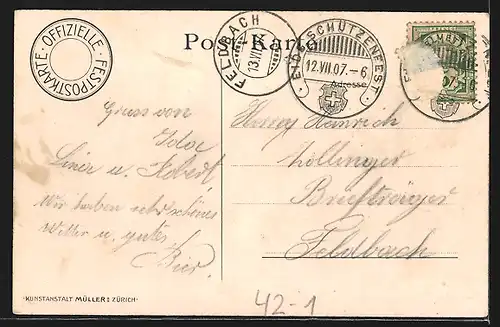 OFFIZIELLE · FESTPOSTKARTE ·
Post-Karte
FELDBACH
13.VII.07
EIDG. SCHÜTZENFEST
12.VII.07.-6
Adresse
Gruss von
Ida
Lina u. Robert
Wir haben sehr schönes
Wetter u. gutes
Bier.
Herrn Heinrich
Zollinger
Briefträger
Feldbach
KUNSTANSTALT MÜLLER ZÜRICH
42-1